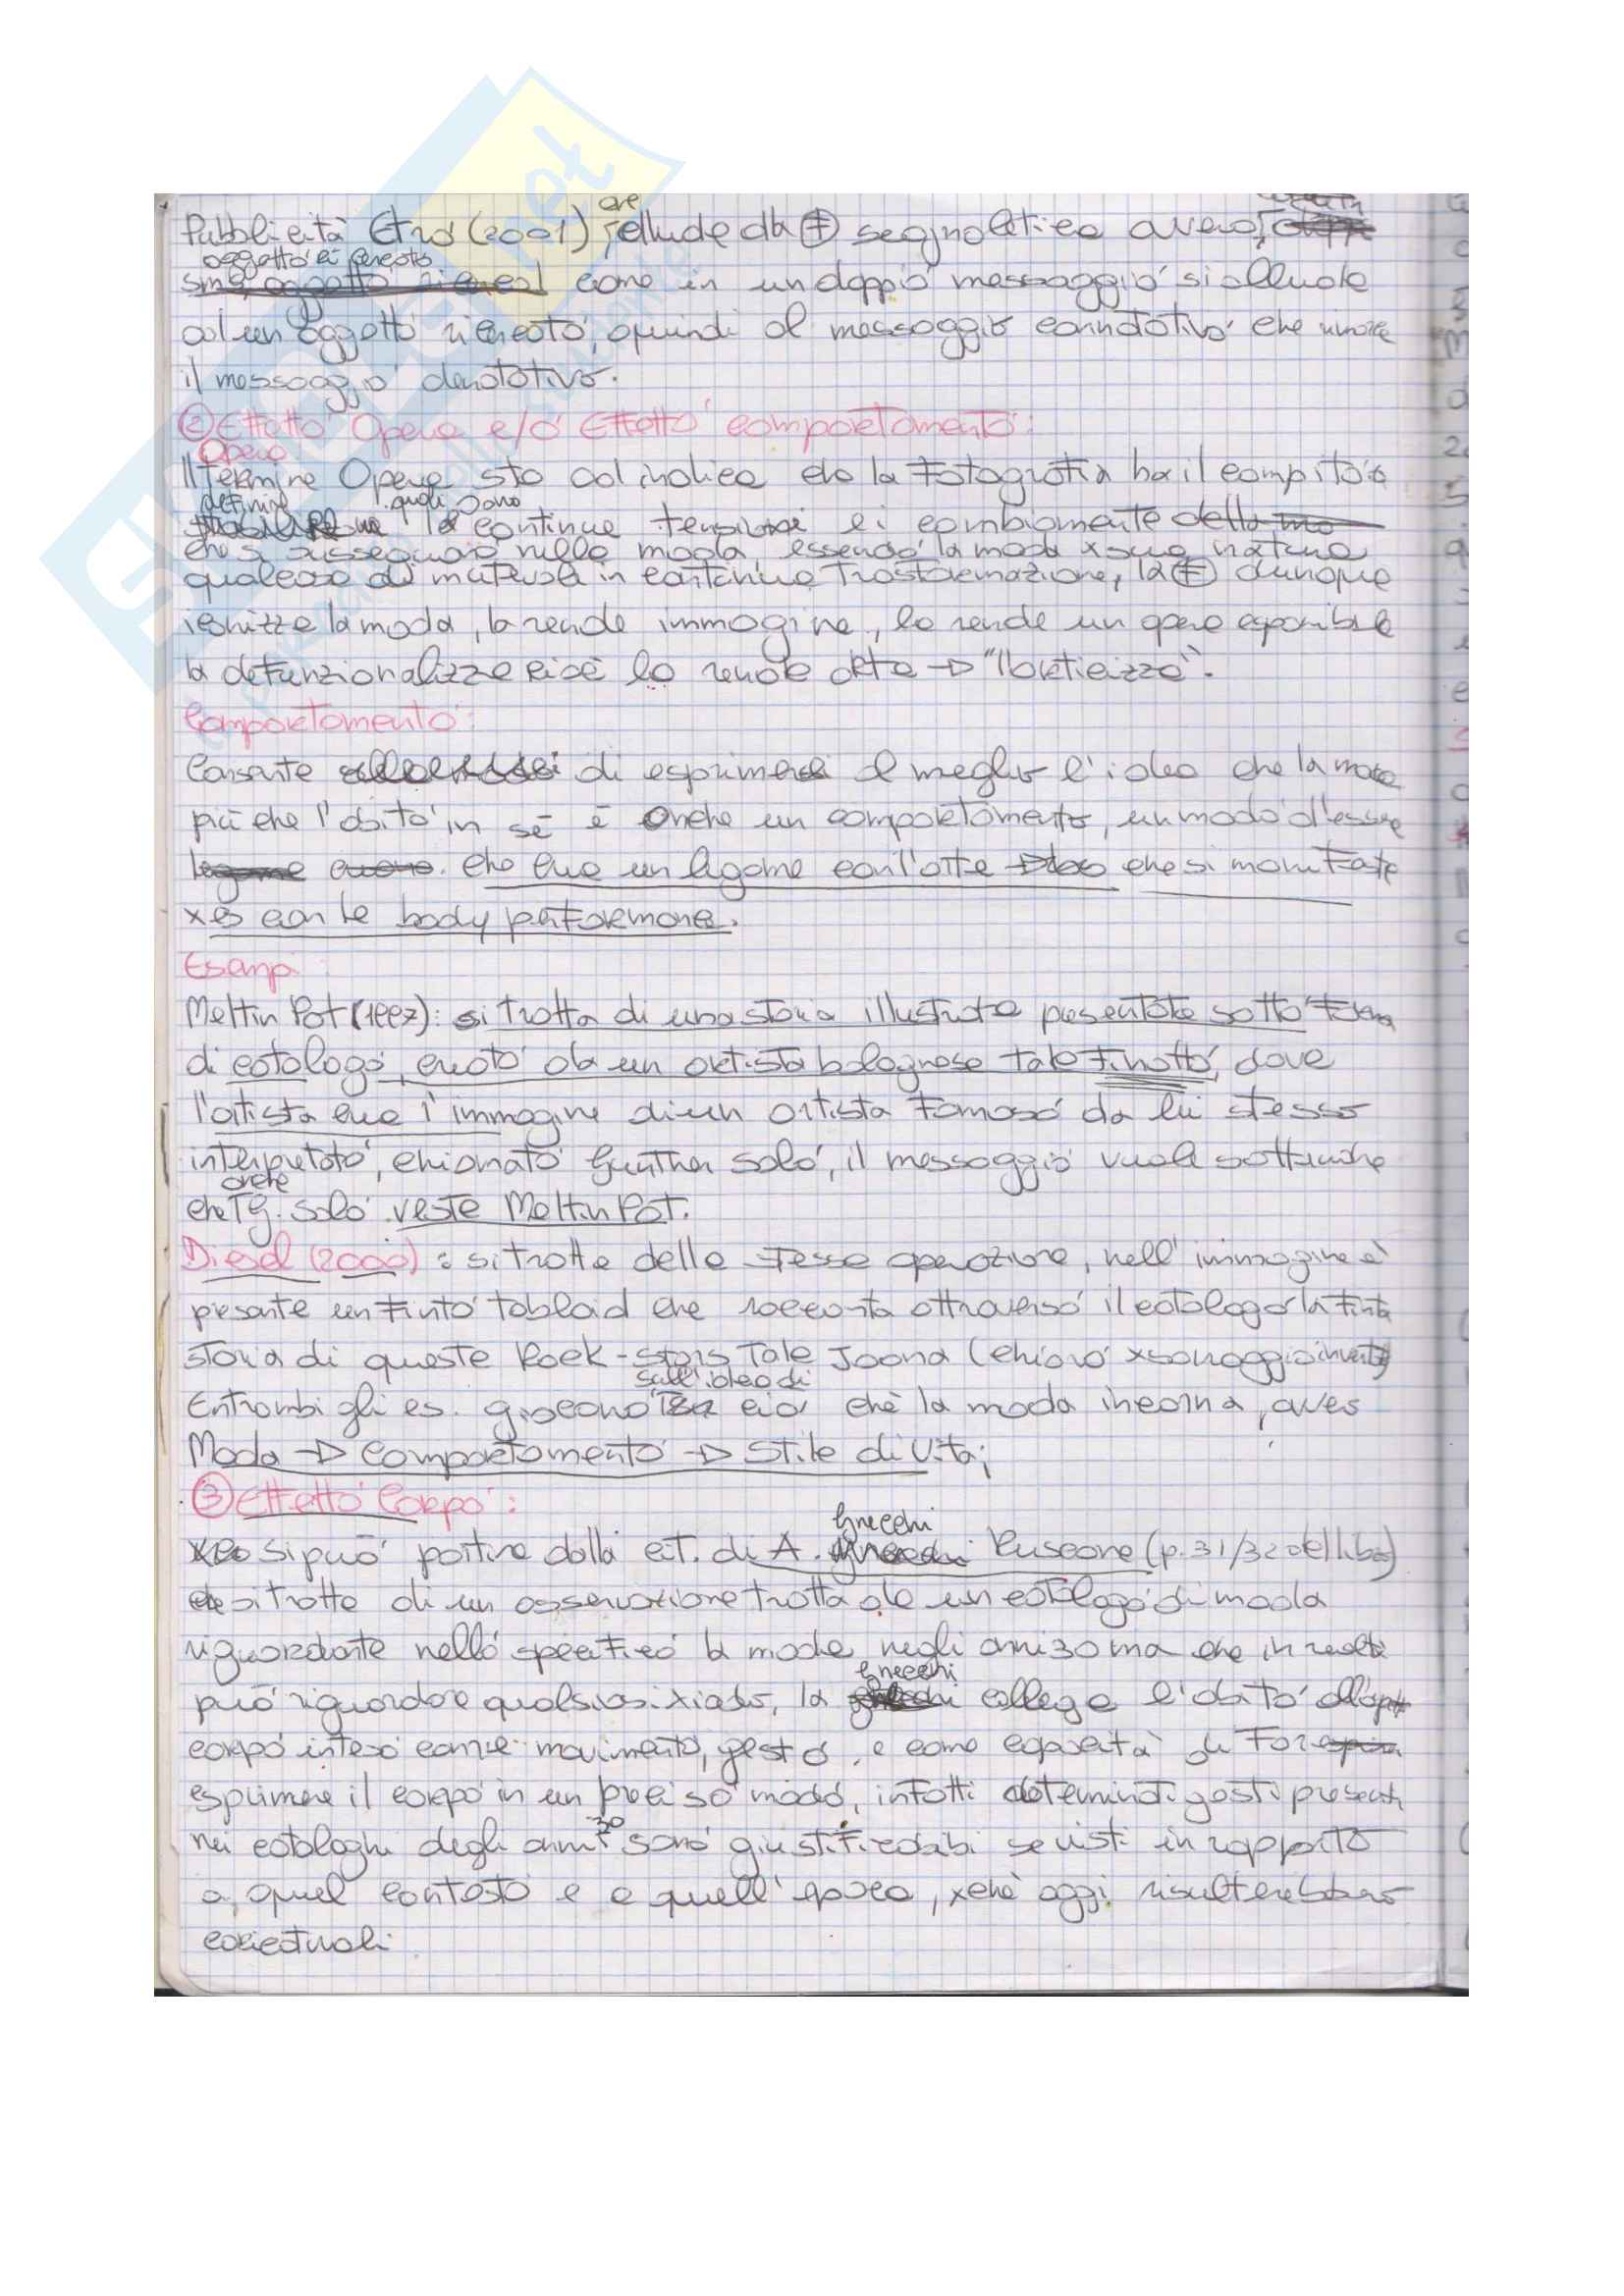 Pubblicità Etro (2001), che allude alla Ⓕ segnaletica avero,
oggetto ricercato
come in un doppio messaggio si allude
ad un oggetto ricercato, quindi al messaggio connotativo che
il messaggio denotativo.
② Effetto Opera e/o Effetto comportamento:
Opera
Il Termine Opera sta ad indica che la Fotografia ha il compito
definire quali sono
le continue tensioni e i cambiamente della
che si susseguono nella moda, essendo la moda x sua natura
qualcosa di mutevole in continua Trasformazione, la Ⓕ dunque
la moda, la rende immagine, la rende un opera esponibile
la defunzionalizza cioè la rende arte → "l'articizza".
Comportamento:
Consente di esprimersi al meglio l'idea che la moda
più che l'abito in sé è anche un comportamento, un modo d'essere
che crea un legame con l'arte che si manifesta
x es con le body performance.
Esempi:
Meltin Pot (1997): si tratta di una storia illustrata presentata sotto forma
di catalogo, creato da un artista bolognese tale Finotto, dove
l'artista crea l'immagine di un artista famoso da lui stesso
interpretato, chiamato Gunther Solo, il messaggio vuole sottintendere
anche
che G. Solo veste Meltin Pot.
Diesel (2000): si tratta della stessa operazione, nell'immagine è
presente un finto tabloid che racconta attraverso il catalogo la finta
storia di queste Rock-stars Tale Joana (chiaro xsonaggio inventato)
sull'idea di
Entrambi gli es. giocano ciò che la moda incarna, ovvero
Moda → Comportamento → Stile di Vita;
③ Effetto Corpo:
Gnecchi
Si può partire dalla cit. di A. Ruscone (p. 31/32 del libro)
si tratta di un osservazione tratta da un catalogo di moda
riguardante nello specifico la moda negli anni 30 ma che in realtà
Gnecchi
può riguardare qualsiasi xiodo, la collega l'abito
corpo inteso come movimento, gesto, e come capacità di
esprimere il corpo in un preciso modo, infatti determinati gesti presenti
30
nei cataloghi degli anni sono giustificabi se visti in rapporto
a quel contesto e a quell'epoca, xchè oggi risulterebbero